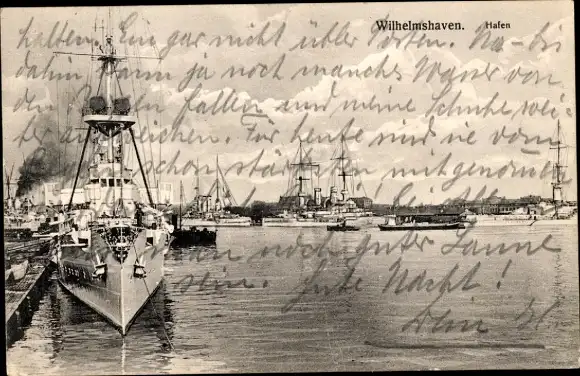 Wilhelmshaven. Hafen
halten. Ein gar nicht übler Posten. Na – bis
dahin kann ja noch manches Wasser von
den fallen und meine Schuhe wei-
ter Für heute sind sie vom
schon stärksten mitgenommen
noch guter Laune
sein. Gute Nacht!
Dein H.